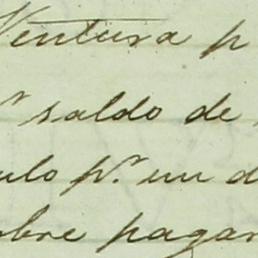 Ventura p
r saldo de
ulo pr. un d
obre pagar